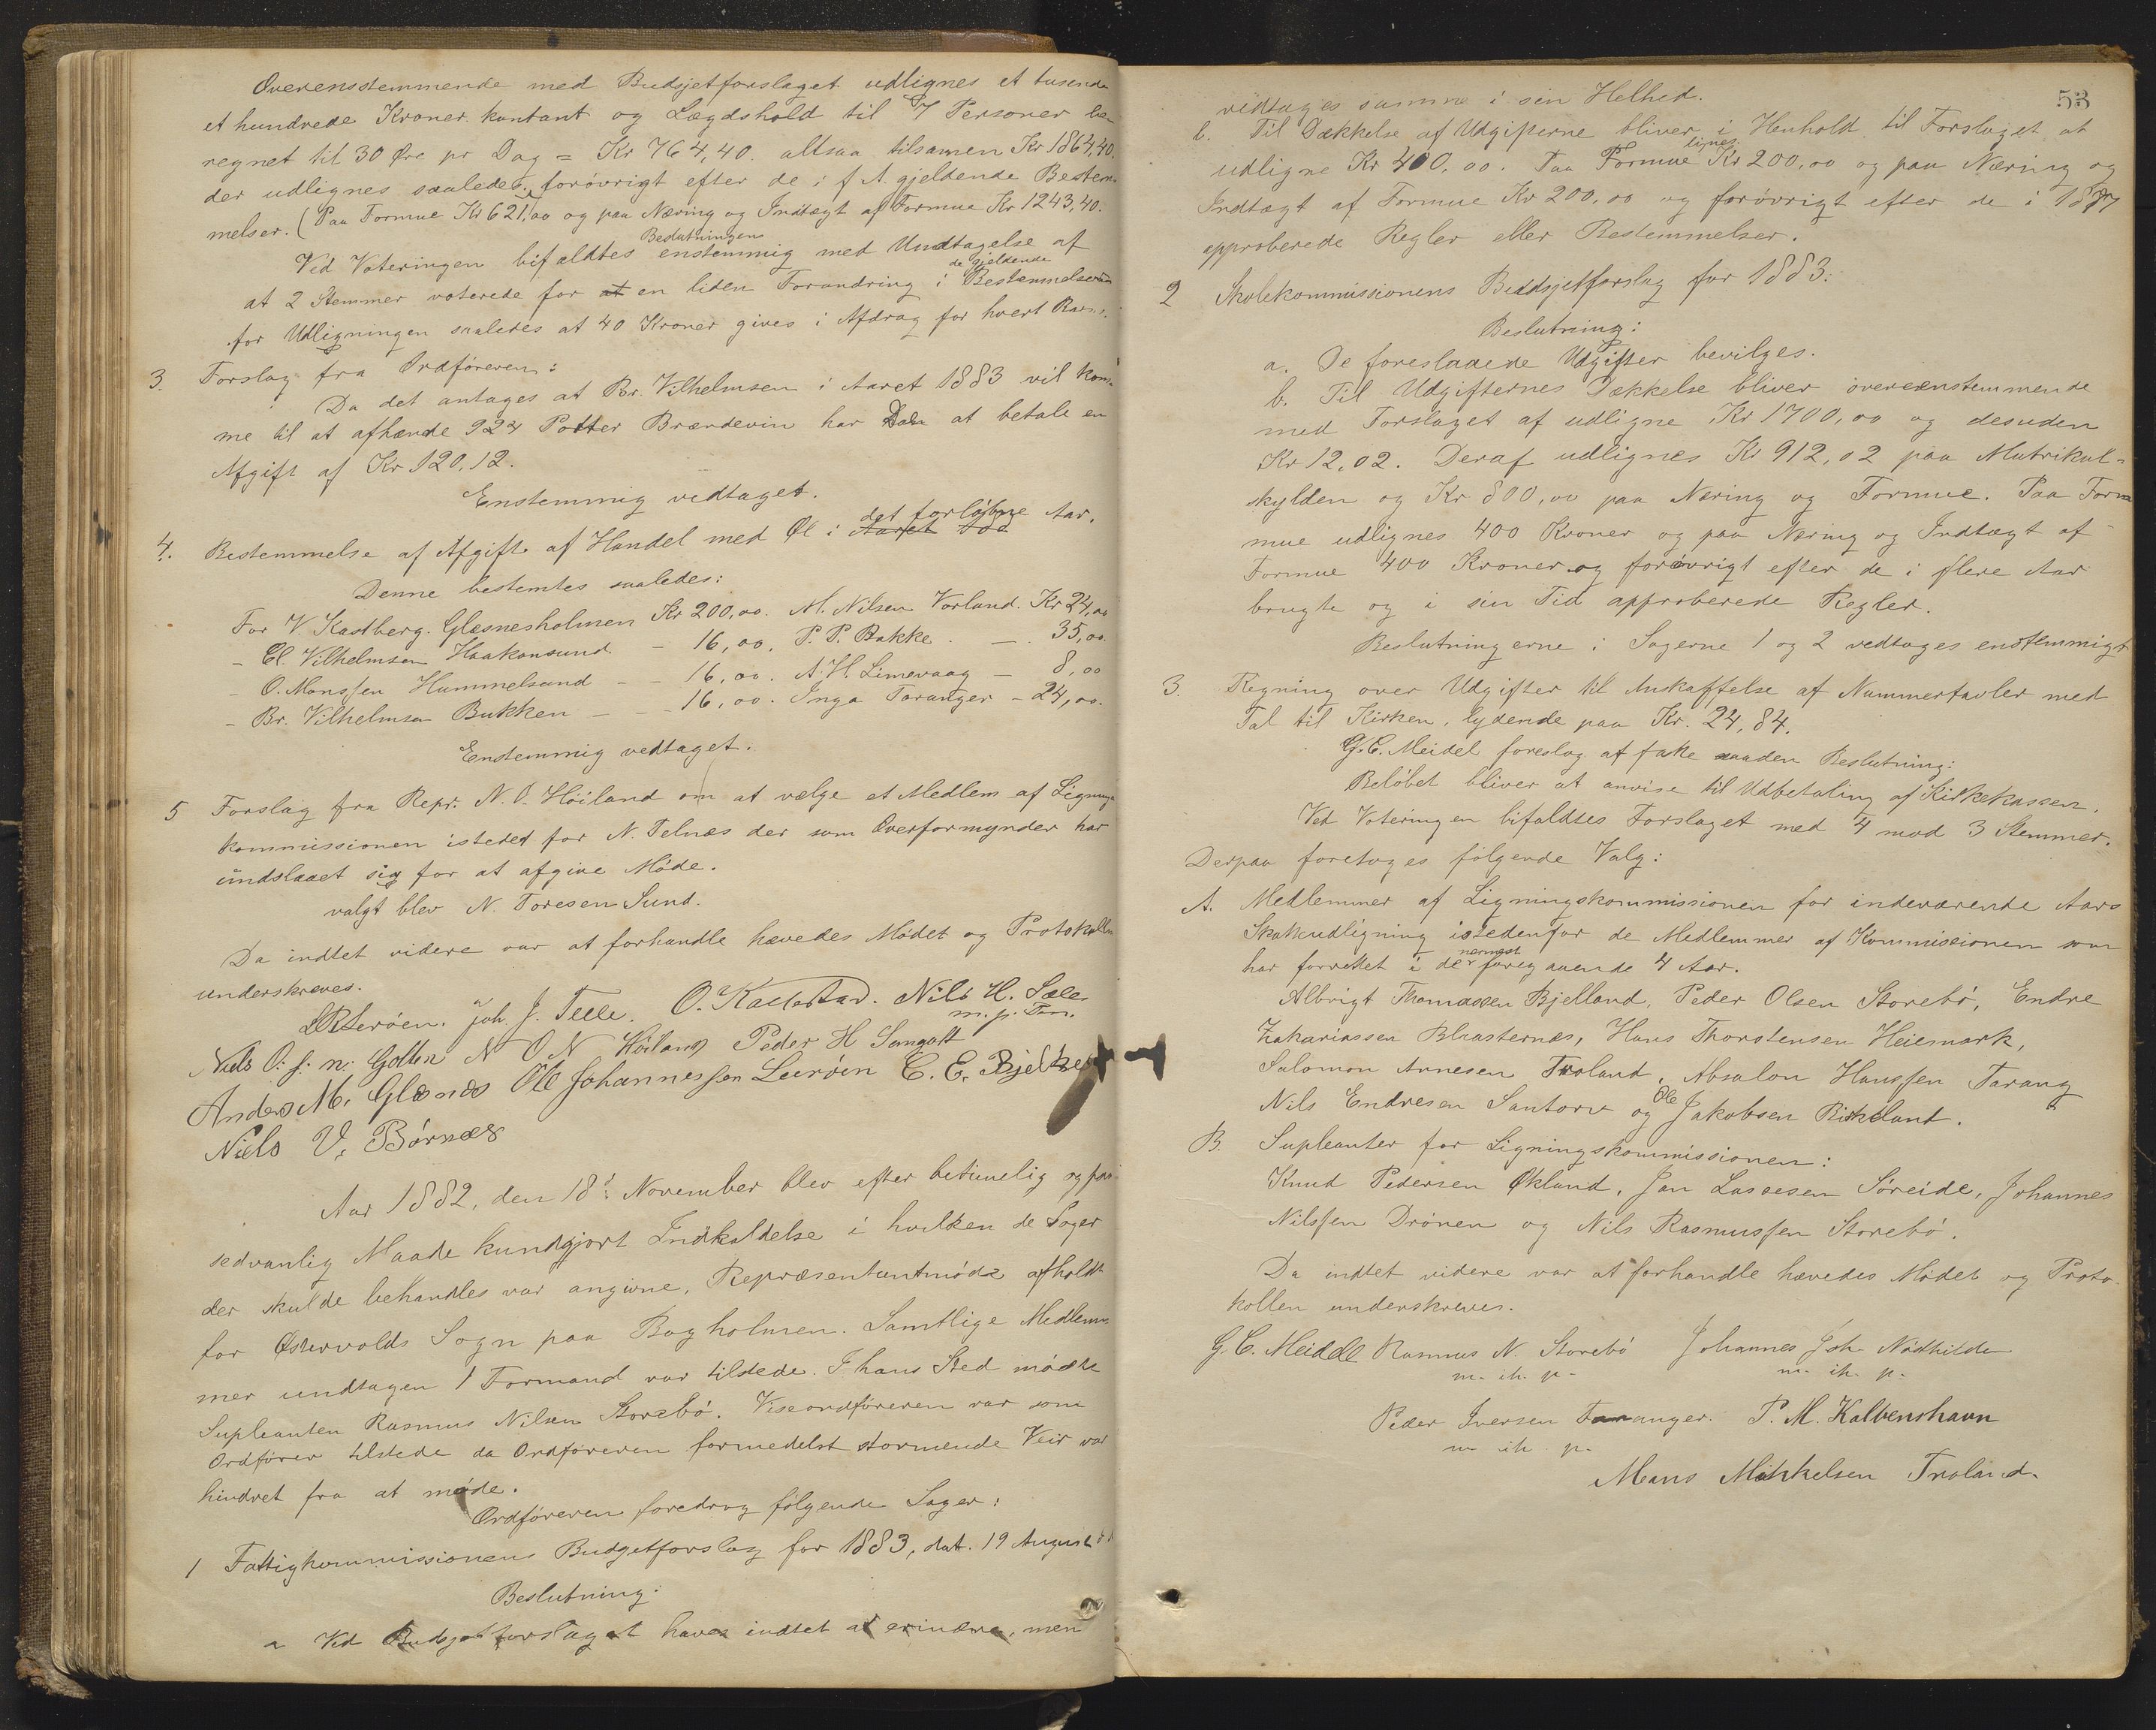 Overensstemmende med Budsjetforslaget udlignes et tusende
et hundrede Kroner kontant og Lægdshold til 7 Personer be-
regnet til 30 Øre pr Dag = Kr 764,40. altsaa tilsamen Kr 1864,40.
der udlignes saaledes, forövrigt efter de i f. A. gjeldende Bestem-
melser. (Paa Formue Kr 621,00 og paa Næring og Indtægt af Formue Kr 1243,40.
Ved Voteringen bifaldtes Beslutningen enstemmig med Undtagelse af
at 2 Stemmer voterede for at en liden Forandring i de gjeldende Bestemmelser
for Udligningen saaledes at 40 Kroner gives i Afdrag for hvert Barn.
3. Forslag fra Ordföreren:
Da det antages at Br. Vilhelmsen i Aaret 1883 vil kom-
me til at afhænde 924 Potter Brændevin har Den at betale en
Afgift af Kr 120,12.
Enstemmig vedtaget.
4. Bestemmelse af Afgift af Handel med Öl i Aaret det forløbne Aar.
Denne bestemtes saaledes:
For V. Kastberg. Glesnesholmen Kr 200,00. M. Nilsen Vorland. Kr 24,00
- El. Vilhelmsen Haakonsund. - 16,00. P. P. Bakke - 35,00.
- O. Monssen Hummelsund - - 16,00. A. H. Limevaag - 8,00
- Br. Vilhelmsen Bukken - - 16,00. Inga Taranger - 24,00.
Enstemmig vedtaget.
5 Forslag fra Repr. N. O. Höiland om at vælge et Medlem af Lignings
kommissionen istedet for N. Telnæs der som Overformynder har
undslaaet sig for at afgive Möde.
valgt blev N. Toresen Sund.
Da indtet videre var at forhandle hævedes Mödet og Protokollen
underskreves.
Joh. J. Telle. O. Kallestad. Nils H. Sæle
Niels O. s. n. Golten N O N Höiland Peder H Sangolt
Anders M. Glesnes Ole Johannessen Leröen C. E. Bjelke
Niels V. Börnes
Aar 1882, den 18de November blev efter betimelig og paa
sedvanlig Maade kundgjort Indkaldelse i hvilken de Sager
der skulde behandles var angivne, Repræsentantmöde afholdt
for Østervolds Sogn paa Bagholmen. Samtlige Medlem
mer undtagen 1 Formand var tilstede. I hans Sted mödte
Supleanten Rasmus Nilsen Storebö. Viseordföreren var som
Ordförer tilstede da Ordföreren formedelst stormende Veir var
hindret fra at möde.
Ordföreren foredrog fölgende Sager:
1 Fattigkommissionens Budgetforslag for 1883, dat. 19 August
Beslutning:
a Ved Budsjetforslaget haves indtet at erindre, men
53
vidtages samme i sin Helhed.
b. Til Dækkelse af Udgifterne bliver i Henhold til Forslaget at
udligne Kr 400,00. Paa Formue lignes Kr 200,00 og paa Næring og
Indtægt af Formue Kr 200,00 og forövrigt efter de i 1877
approberede Regler eller Bestemmelser.
2 Skolekommissionens Buddsjetforslag for 1883:
Beslutning:
a. De foreslaaede Udgifter bevilges.
b. Til Udgifternes Dækkelse bliver overeenstemmende
med Forslaget af udligne Kr 1700,00 og desuden
Kr 12,02. Deraf udlignes Kr 912,02 paa Matrikul-
skylden og Kr 800,00 paa Næring og Formue. Paa For-
mue udlignes 400 Kroner og paa Næring og Indtægt af
Formue 400 Kroner og forövrigt efter de i flere Aar
brugte og i sin Tid approberede Regler.
Beslutningerne i Sagerne 1 og 2 vedtages enstemmigt
3. Regning over Udgifter til Anskaffelse af Nummertavler med
Tal til Kirken, lydende paa Kr. 24,84.
G. C. Meidel foreslog at fatte saaden Beslutning:
Belöbet bliver at anvise til Udbetaling af Kirkekassen.
Ved Voteringen bifaldtes Forslaget med 4 mod 3 Stemmer.
Derpaa foretoges fölgende Valg:
A. Medlemmer af Ligningskommissionen for indeværende Aars
Skatudligning istedenfor de Medlemmer af Kommissionen som
har forrettet i de nærmest foregaaende 4 Aar.
Albrigt Thomassen Bjelland, Peder Olsen Storebö, Endre
Zakariassen Blæsternæs, Hans Thorstensen Heiemark,
Salomon Arnesen Troland, Absalon Hanssen Tarang
Nils Endresen Santorv og Ole Jakobsen Birkeland.
B. Supleanter for Ligningskommissionen:
Knud Pedersen Økland, Jan Lassesen Söreide, Johannes
Nilssen Drönen og Nils Rasmussen Storebö.
Da indtet videre var at forhandle hævedes Mödet og Proto-
kollen underskreves.
G. C. Meidell Rasmus N. Storebö Johannes Joh. Nödtvidt
m. ih. p. m. ih. p.
Peder Iversen Taranger. P. M. Kalvenshavn
m. ih. p.
Mans Mikkelsen Troland.